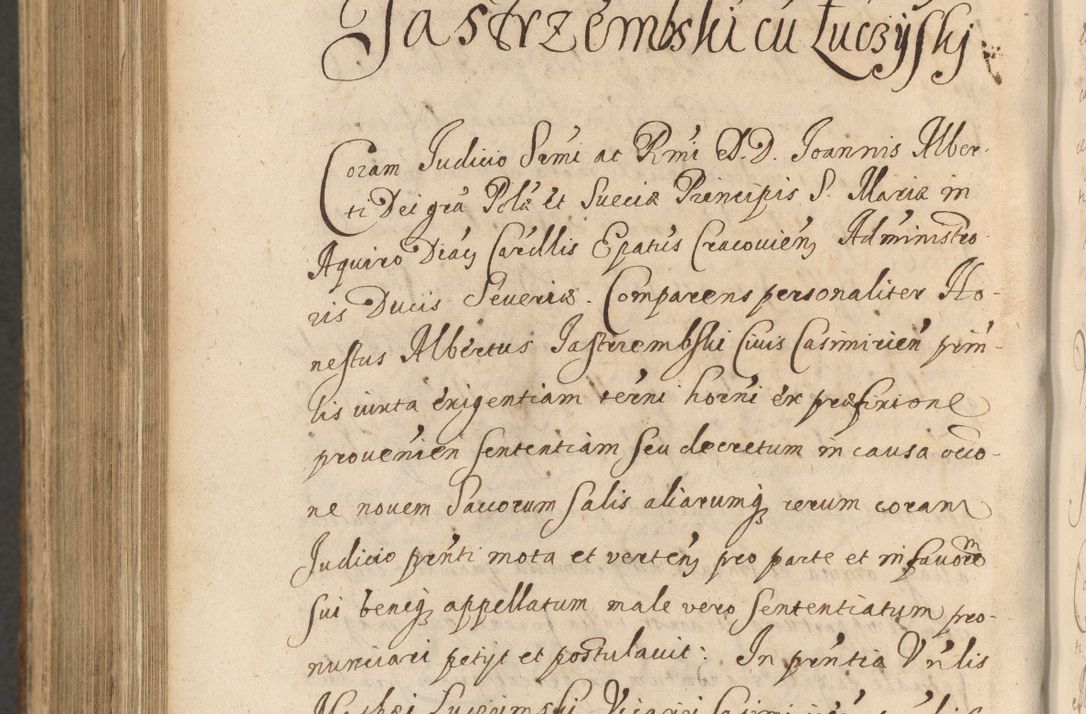 Jastrzembski cu Łuczÿski
Coram Judicio Srmi ac Rmi D.D. Joannis Alber-
ti Dei gra Pola et Sueciæ Principis S. Mariæ in
Aquiro Diac Cardllis Epatus Cracovien Administro
ris Ducis Severiæ. Comparens personaliter Ho-
nestus Albertus Jastrzembski Civis Casimirien prin-
lis iuxta exigentiam termi horni ex præfixione
provenien sententiam seu decretum in causa occo-
ne novem Saccorum salis aliarumq rerum coram
Judicio prnti mota et verten pro parte et in favore
sui beneq appellatum male vero sententiatum pro-
nunciari petyt et postulavit: In prntia Vnlis